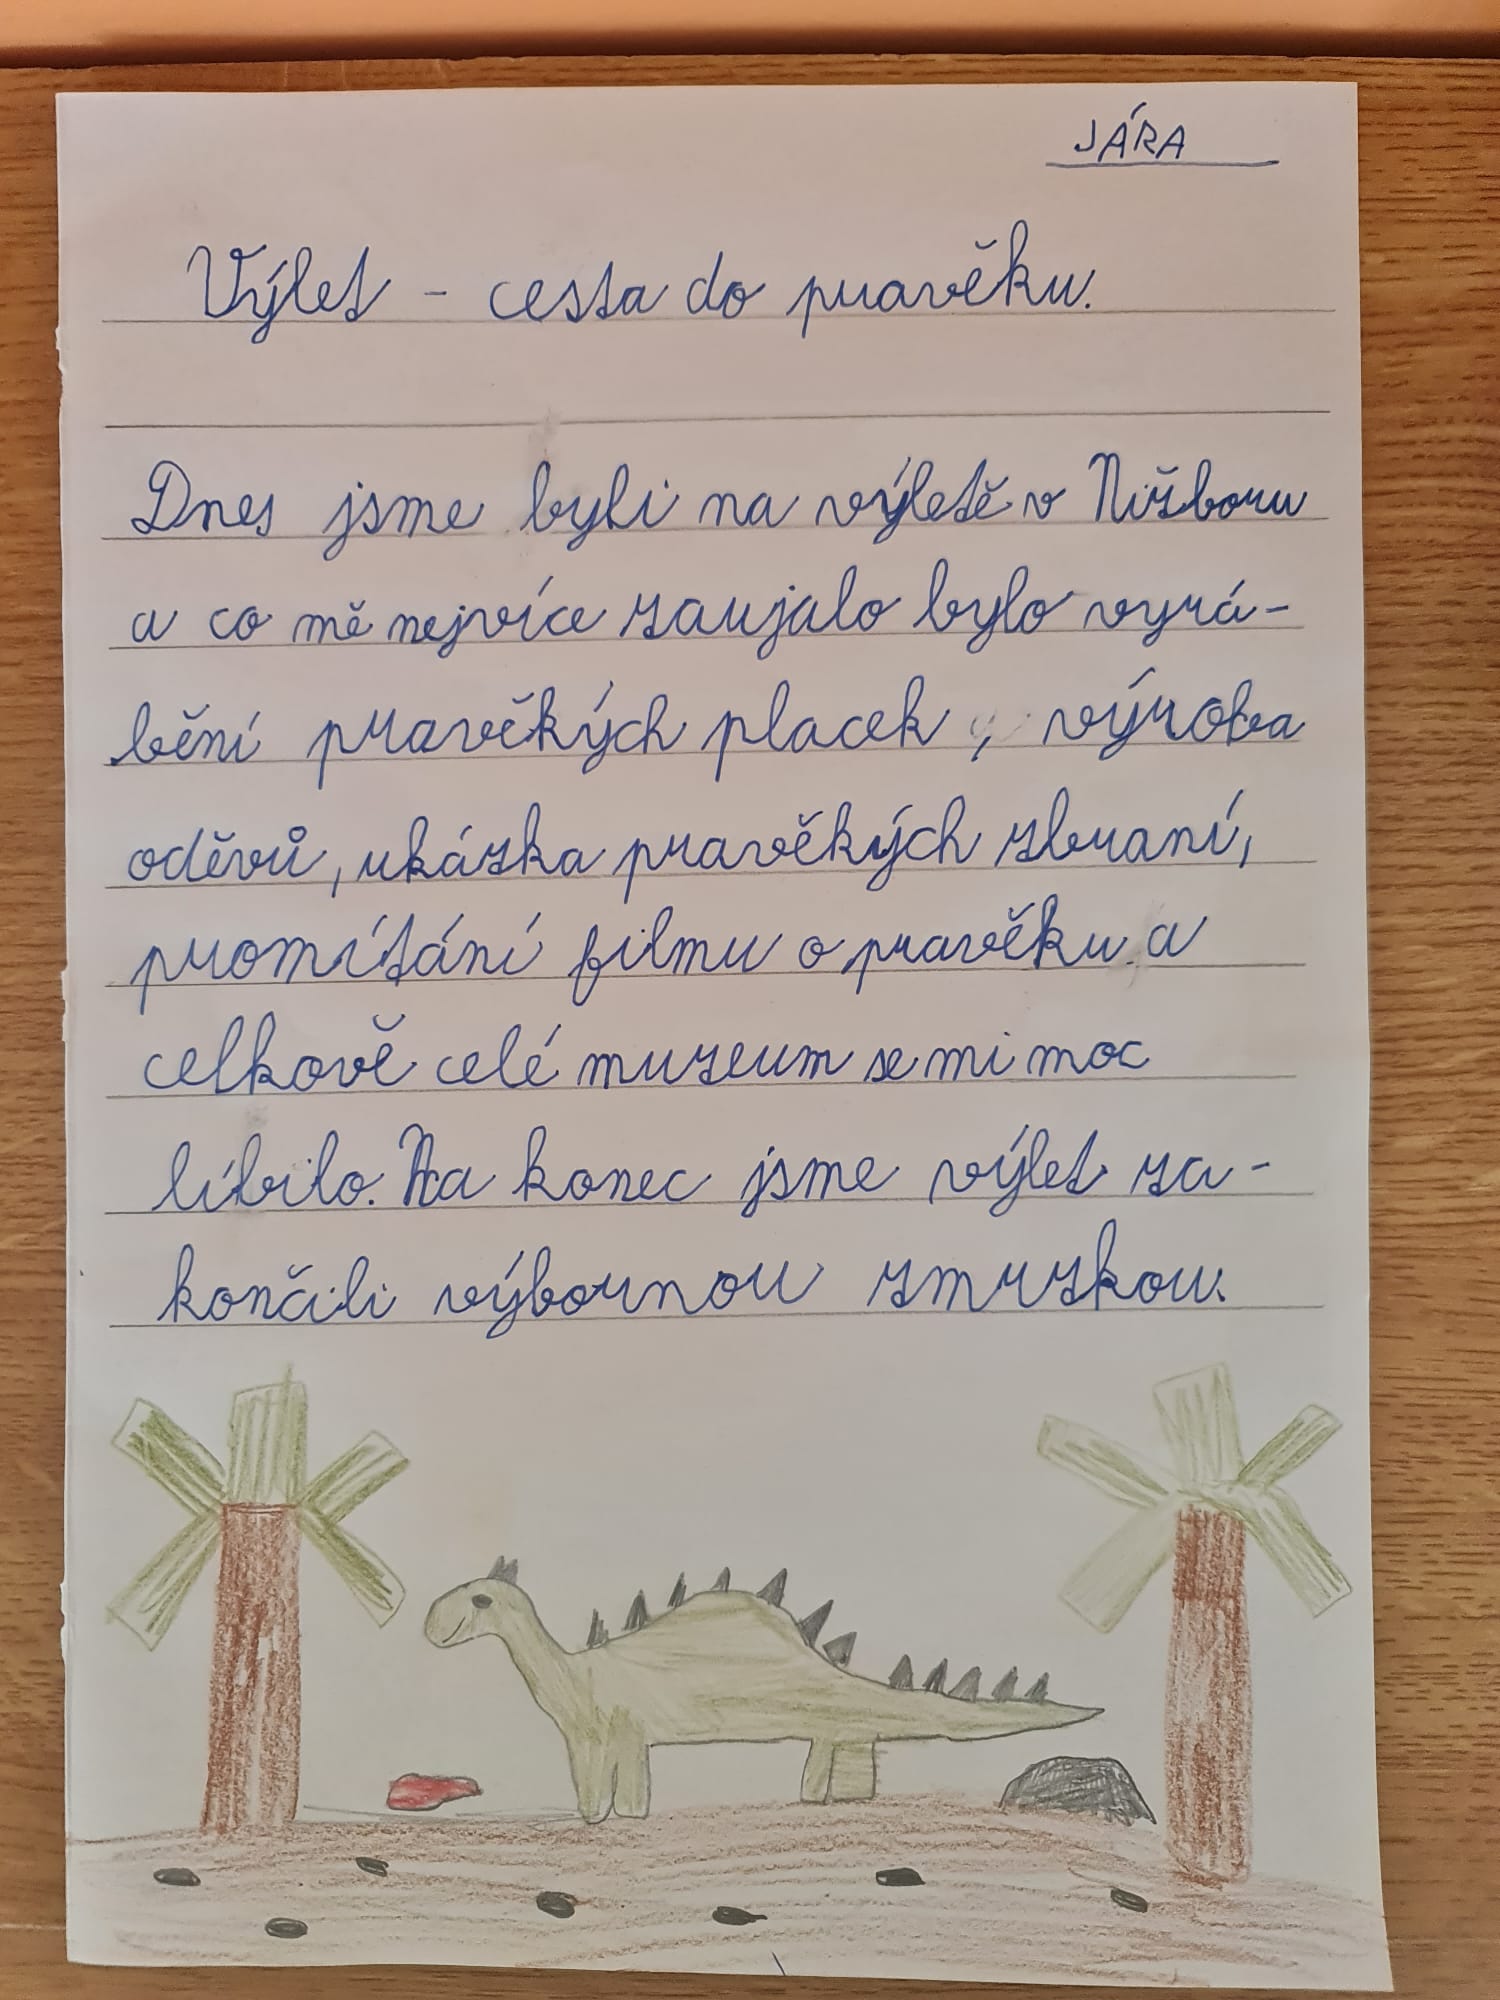 JÁRA
Výlet - cesta do pravěku.
Dnes jsme byli na výletě v Nižboru
a co mě nejvíce zaujalo bylo vyrá-
bění pravěkých placek, výroba
oděvů, ukázka pravěkých zbraní,
promítání filmu o pravěku a
celkově celé muzeum se mi moc
líbilo. Na konec jsme výlet za-
končili výbornou zmrzkou.